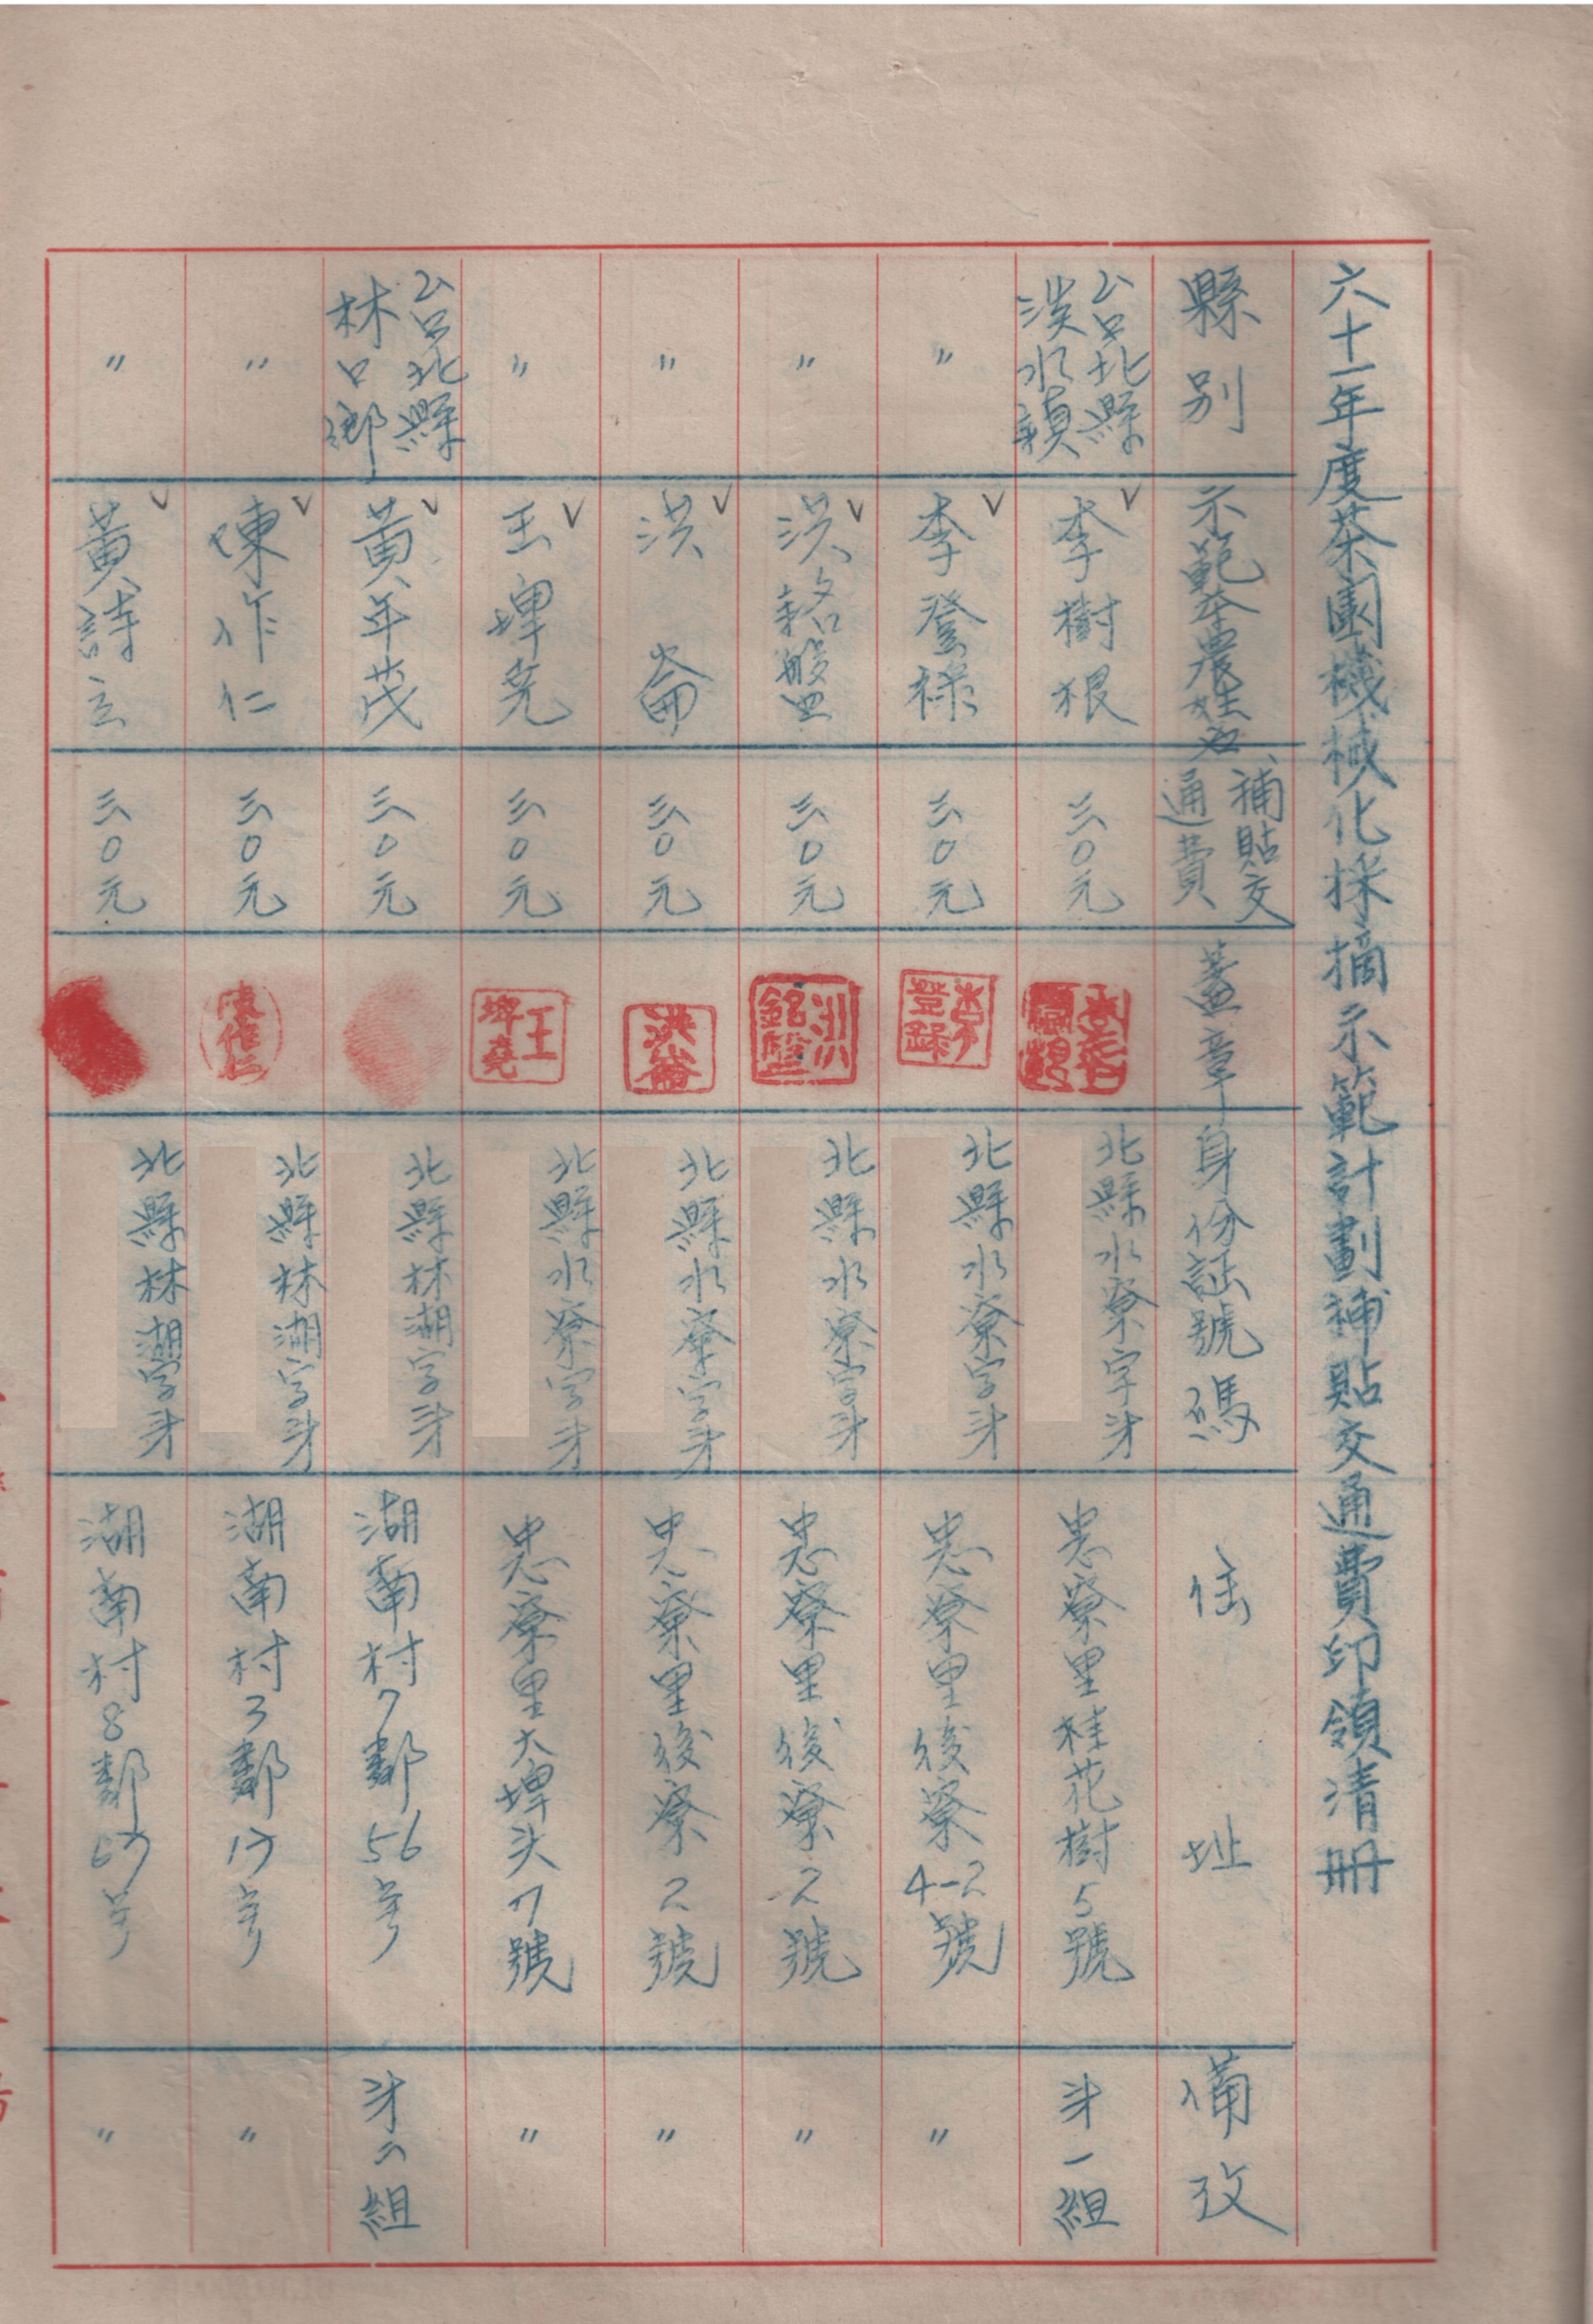 六十一年度茶園機械化採摘示範計劃補貼交通費印領清冊
縣別
示範茶農姓名
補貼交
通費
蓋章
身份証號碼
住址
備攷
台北縣
淡水鎮
李樹根
三〇元
北縣水寮字第
忠寮里桂花樹5號
第一組
〃
李登祿
三〇元
李登錄
北縣水寮字第
忠寮里後寮4-2號
〃
〃
洪銘盤
三〇元
洪銘盤
北縣水寮字第
忠寮里後寮2號
〃
〃
洪崙
三〇元
洪崙
北縣水寮字第
忠寮里後寮2號
〃
〃
王埤堯
三〇元
王埤堯
北縣水寮字第
忠寮里大埤头7號
〃
台北縣
林口鄉
黃年茂
三〇元
北縣林湖字第
湖南村7鄰56号
第二組
〃
陳作仁
三〇元
陳作仁
北縣林湖字第
湖南村3鄰17号
〃
〃
黃詩立
三〇元
北縣林湖字第
湖南村8鄰67号
〃